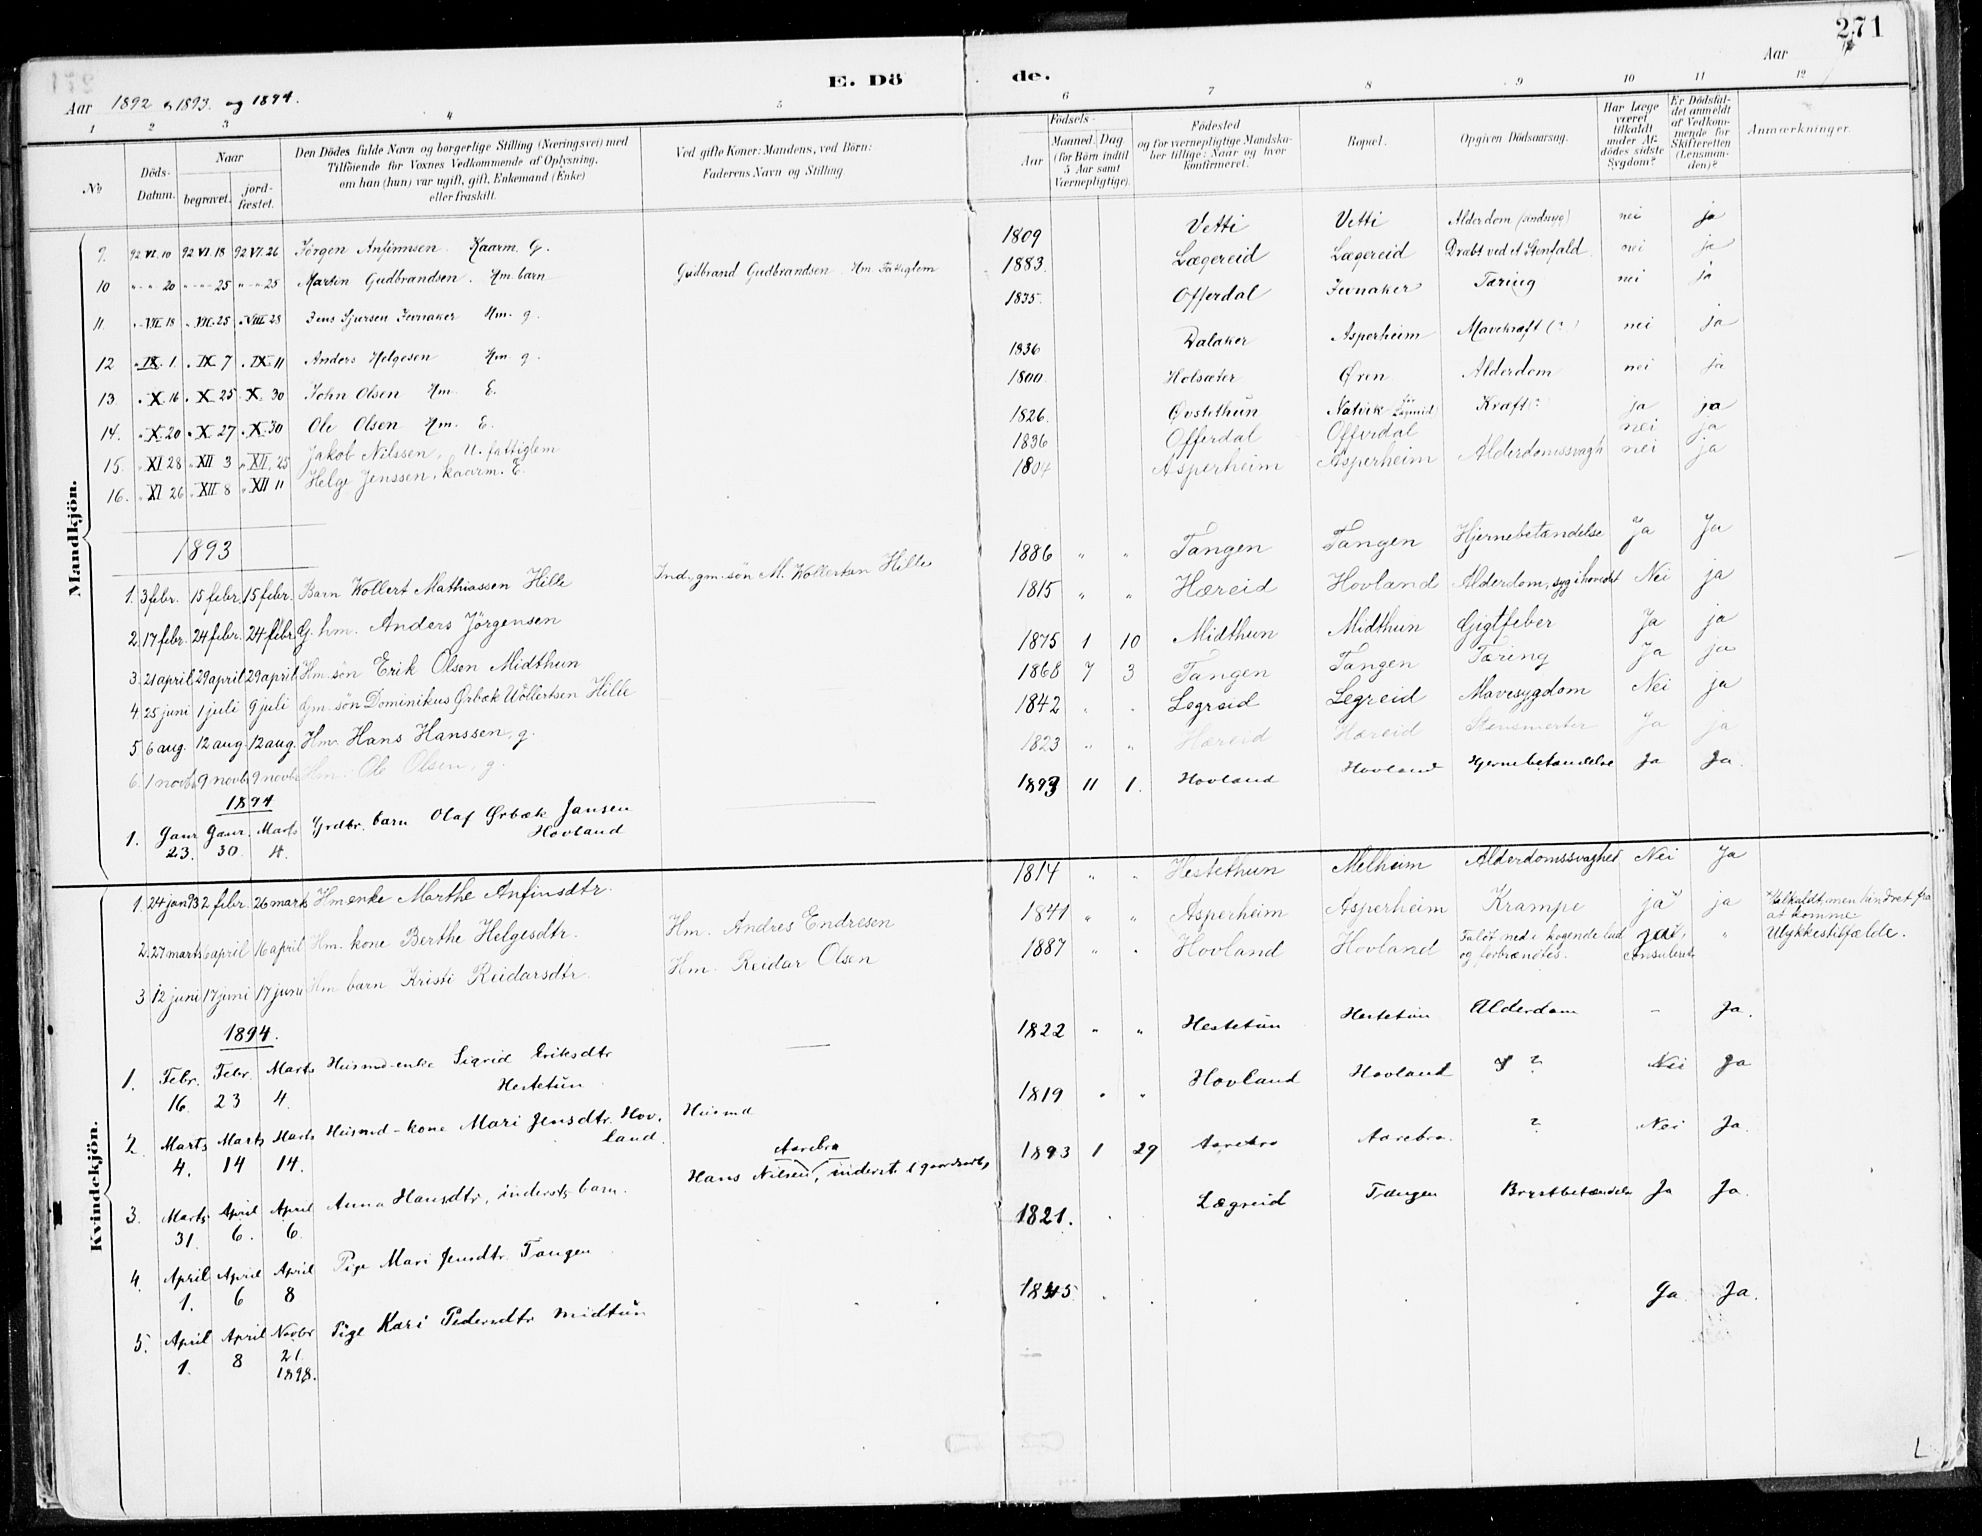 271
E. Dö de.
Aar 1892 og 1893. og 1894.
Aar
1 2 3 4 5 6 7 8 9 10 11 12
No
Döds-Datum.
Naar
begravet.
jord-fæstet.
Den Dödes fulde Navn og borgerlige Stilling (Næringsvei) med
Tilföiende for Voxnes Vedkommende af Oplysning,
om han (hun) var ugift, gift, Enkemand (Enke)
eller fraskilt.
Ved gifte Koner: Mandens, ved Börn:
Faderens Navn og Stilling
Födsels-
Aar
Maaned. Dag
(for Börn indtil
5 Aar samt
Værnepligtige).
Födested
og for værnepligtige Mandska-
ber tillige: Naar og hvor
konfirmeret.
Bopæl.
Opgiven Dödsaarsag.
Har Læge
været
tilkaldt
under Af-
dödes sidste
Sygdom?
Er Dödsfal-
det anmeldt
af Vedkom-
mende for
Skifteretten
(Lensman-
den)?
Anmærkninger.
Mandkjön.
9. 92 VI. 10 92 VI. 18 92 VI. 26 Jörgen Anfinnsen Kaarm. G. 1809 Vetti Vetti Alderdom nei ja
10 " " 20 " " 25 " " 25 Martin Gudbrandsen. Hm. barn Gudbrand Gudbrandsen Hm. Fattiglem 1883. Lægereid Lægereid Dræbt ved et Stenfald nei ja
11. " VII. 18 " VII. 25 " VIII 28 Jens Sjursen Jevnaker Hm. g. 1835. Offerdal Jevnaker Tæring nei ja
12 " IX. 1. " IX. 7 " IX. 11 Anders Helgesen Hm g. 1836 Dalaker Asperheim Mavekræft (?) nei ja
13 " X. 16 " X. 25 X. 30 John Olsen Hm. E. 1800 Holsæter Øren Alderdom nei ja
14. " X. 20 " X. 27 " X. 30 Ole Olsen Hm. E. 1826. Øvstethun Natvik Kræft (?) ja ja
15. " XI 28 " XII 3 " XII, 25 Jakob Nilssen, U. fattiglem 1836 Offerdal Offerdal nei ja
16. " XI 26 " XII 8 " XII 11 Helge Jenssen, kaarm. E. 1804 Asperheim Asperheim Alderdomssvagh nei ja
1893
1. 3 febr. 15 febr. 15 febr. Barn Wollert Mathiassen Hille Ind. gm. søn M. Wollertsen Hille 1886 " " Tangen Tangen Hjernebetændelse Ja Ja
2 17 febr. 24 febr. 24 febr. G. hm. Anders Jörgensen 1815 " " Hæreid Hovland Alderdom, syg i hovedet Nei ja
3. 21 april 29 april 29 april Hm. sön Erik Olsen Midthun 1875 1 10 Midthun Midthun Gigtfeber Ja ja
4 25 juni 1 juli 9 juli Gm. sön Dominikus Ørbæk Wollertsen Hille 1868 7 3 Tangen Tangen Tæring Ja ja
5 6 aug. 12 aug. 12 aug. Hm. Hans Hanssen, g. 1842 " " Legreid Legreid Mavesygdom Nei ja
6. 1 novb 9 novb 9 novb Hm. Ole Olsen, g. 1823 " " Hæreid Hæreid Stensmerter Ja ja
1894
1. Janr 23. Janr. 30. Marts 4. Grdbr. barn Olaf Ørbæk Jansen Hovland 1893 11 1. Hovland Hovland Hjernebetændelse Ja Ja.
Kvindekjön.
1. 24 jan 93 2 febr. 26 marts Hm enke Marthe Anfinsdtr. 1814 " " Hestethun Melheim Alderdomssvaghed Nei Ja
2. 27 marts 6 april 16 april Hm. kone Berthe Helgesdtr. Hm. Andres Endresen 1841 " " Asperheim Asperheim Krampe ja* ja *tilkaldt, men hindret fra at komme
3 12 juni 17 juni 17 juni Hm barn Kristi Reidarsdtr. Hm. Reidar Olsen 1887 " " Hovland Hovland Faldt ned i kogende lud og forbrændtes. ja, consuleret " Ulykkestilfælde.
1894.
1. Febr. 16. Febr. 23 Marts 4. Husmd-enke Sigrid Eriksdtr Hestetun 1822 " " Hestetun Hestetun Alderdom - Ja.
2. Marts 4. Marts 14 Marts 14. Husmd-kone Mari Jensdtr. Hovland. Husmd 1819 " " Hovland Hovland ? Nei Ja
3. Marts 31. April 6. April 6. Anna Hansdtr, inderst barn. Hans Nilsen Aarebra, inderst 1893 1 29 Aarebra Aarebra. ? Nei Ja.
4. April 1. April 6 April 8 Pige Mari Jensdtr. Tangen 1821. Lægreid Tangen Brystbetændelse Ja Ja.
5. April 1. April 8 Novbr 21 1898. Pige Kari Pedersdtr Midtun 1845 Ja. Ja.